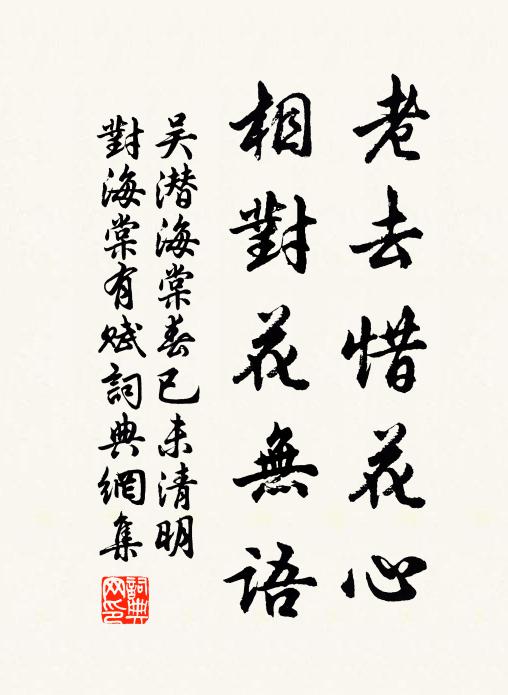 老去惜花心
相對花無語
吴潜海棠春己未清明
對海棠有赋詞典網集
詞典
网印